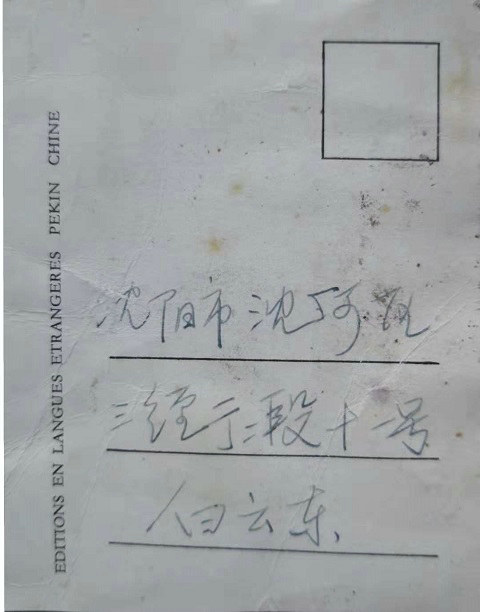 EDITIONS EN LANGUES ETRANGERES PEKIN CHINE
沈阳市沈河区
三经二段十一号
白云东